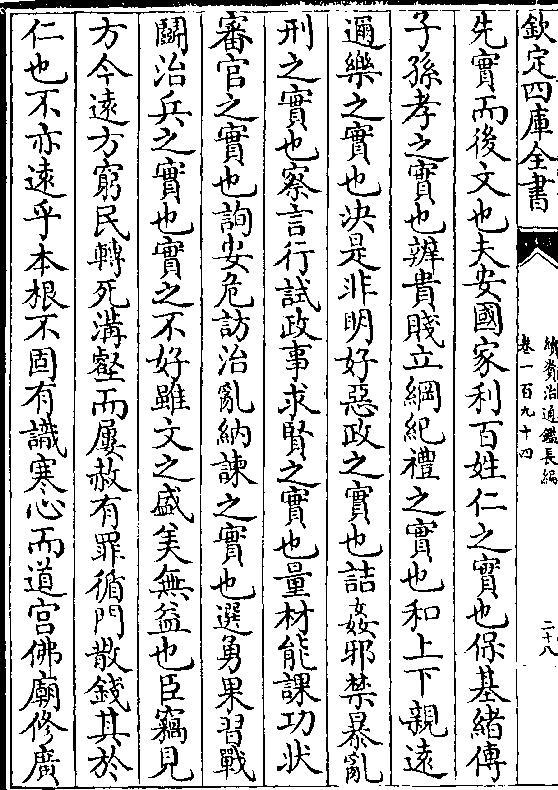 欽定四庫全書
續資治通鑑長編
卷一百九十四
二十八
先實而後文也夫安國家利百姓仁之實也保基緒傳
子孫孝之實也辨貴賤立綱紀禮之實也和上下親遠
邇樂之實也決是非明好惡政之實也詰姦邪禁暴亂
刑之實也察言行試政事求賢之實也量材能課功狀
審官之實也詢安危訪治亂納諫之實也選勇果習戰
鬬治兵之實也實之不好雖文之盛美無益也臣竊見
方今遠方窮民轉死溝壑而屢赦有罪循門散錢其於
仁也不亦遠乎本根不固有識寒心而道宫佛廟修廣